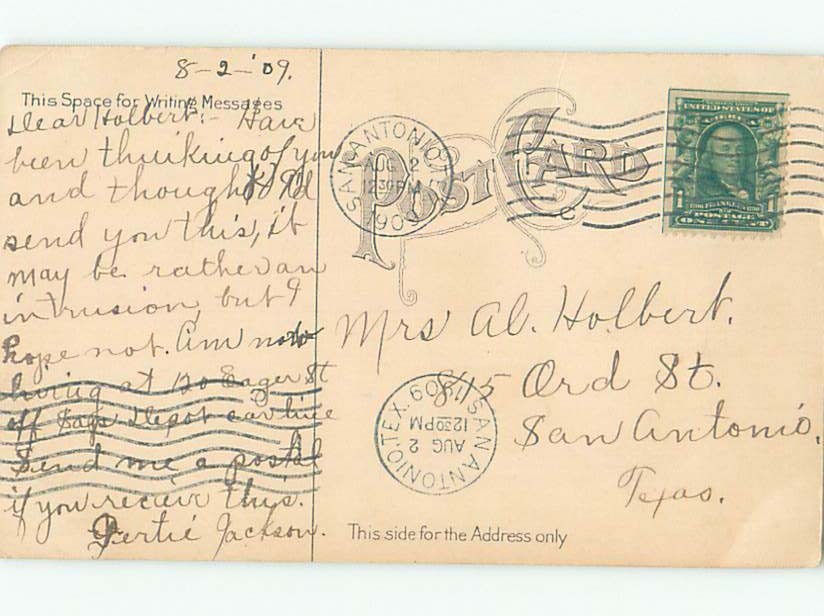 8-2-'09.
This Space for Writing Messages
Dear Holbert:- Have
been thinking of you
and thought I'd
send you this, it
may be rather an
intrusion, but I
hope not. Am now
living at 120 Eager St
off Saps Depot car line
Send me a postal
if you receive this.
Gertie Jackson.
POST CARD
SAN ANTONIO, TEX.
AUG 2
12 30 PM
1909
UNITED STATES OF
AMERICA
FRANKLIN
1 POSTAGE 1
ONE CENT
Mrs Al. Holbert.
815 Ord St.
San Antonio,
Texas.
SAN ANTONIO, TEX.
AUG 2
12 30 PM
1909
This side for the Address only